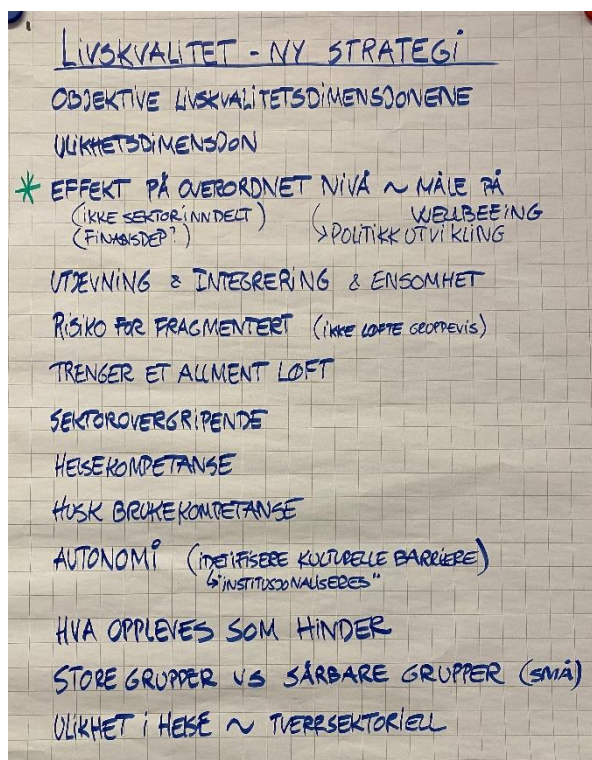 LIVSKVALITET - NY STRATEGI
OBJEKTIVE LIVSKVALITETSDIMENSJONENE
ULIKHETSDIMENSJON
* EFFEKT PÅ OVERORDNET NIVÅ ~ MÅLE PÅ
(IKKE SEKTORINNDELT) WELLBEEING
(FINANSDEP?) ↳ POLITIKKUTVIKLING
UTJEVNING & INTEGRERING & ENSOMHET
RISIKO FOR FRAGMENTERT (IKKE LØFTE GRUPPEVIS)
TRENGER ET ALLMENT LØFT
SEKTOROVERGRIPENDE
HELSEKOMPETANSE
HUSK BRUKEKOMPETANSE
AUTONOMI (IDETIFISERE KULTURELLE BARRIERE)
↳ "INSTITUSJONALISERES"
HVA OPPLEVES SOM HINDER
STORE GRUPPER VS SÅRBARE GRUPPER (SMÅ)
ULIKHET I HELSE ~ TVERRSEKTORIELL